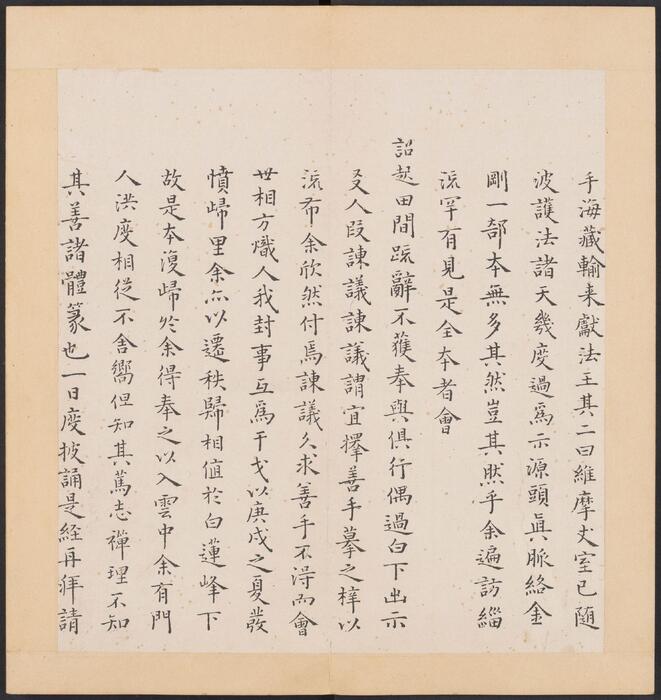 手海藏輸来獻法王其二曰維摩丈室已随
波護法諸天幾度過為示源頭眞脈絡金
剛一部本無多其然豈其然乎余遍訪緇
流罕有見是全本者會
詔起田間踈辭不獲奉與俱行偶過白下出示
友人段諫議諫議謂宜擇善手摹之梓以
流布余欣然付焉諫議久求善手不淂而會
世相方熾人我封事互為干戈以庚戌之夏發
憤歸里余亦以遷秩歸相值於白蓮峰下
故是本復歸於余得奉之以入雲中余有門
人洪度相從不舍嚮但知其篤志禪理不知
其善諸體篆也一日度披誦是経再拜請